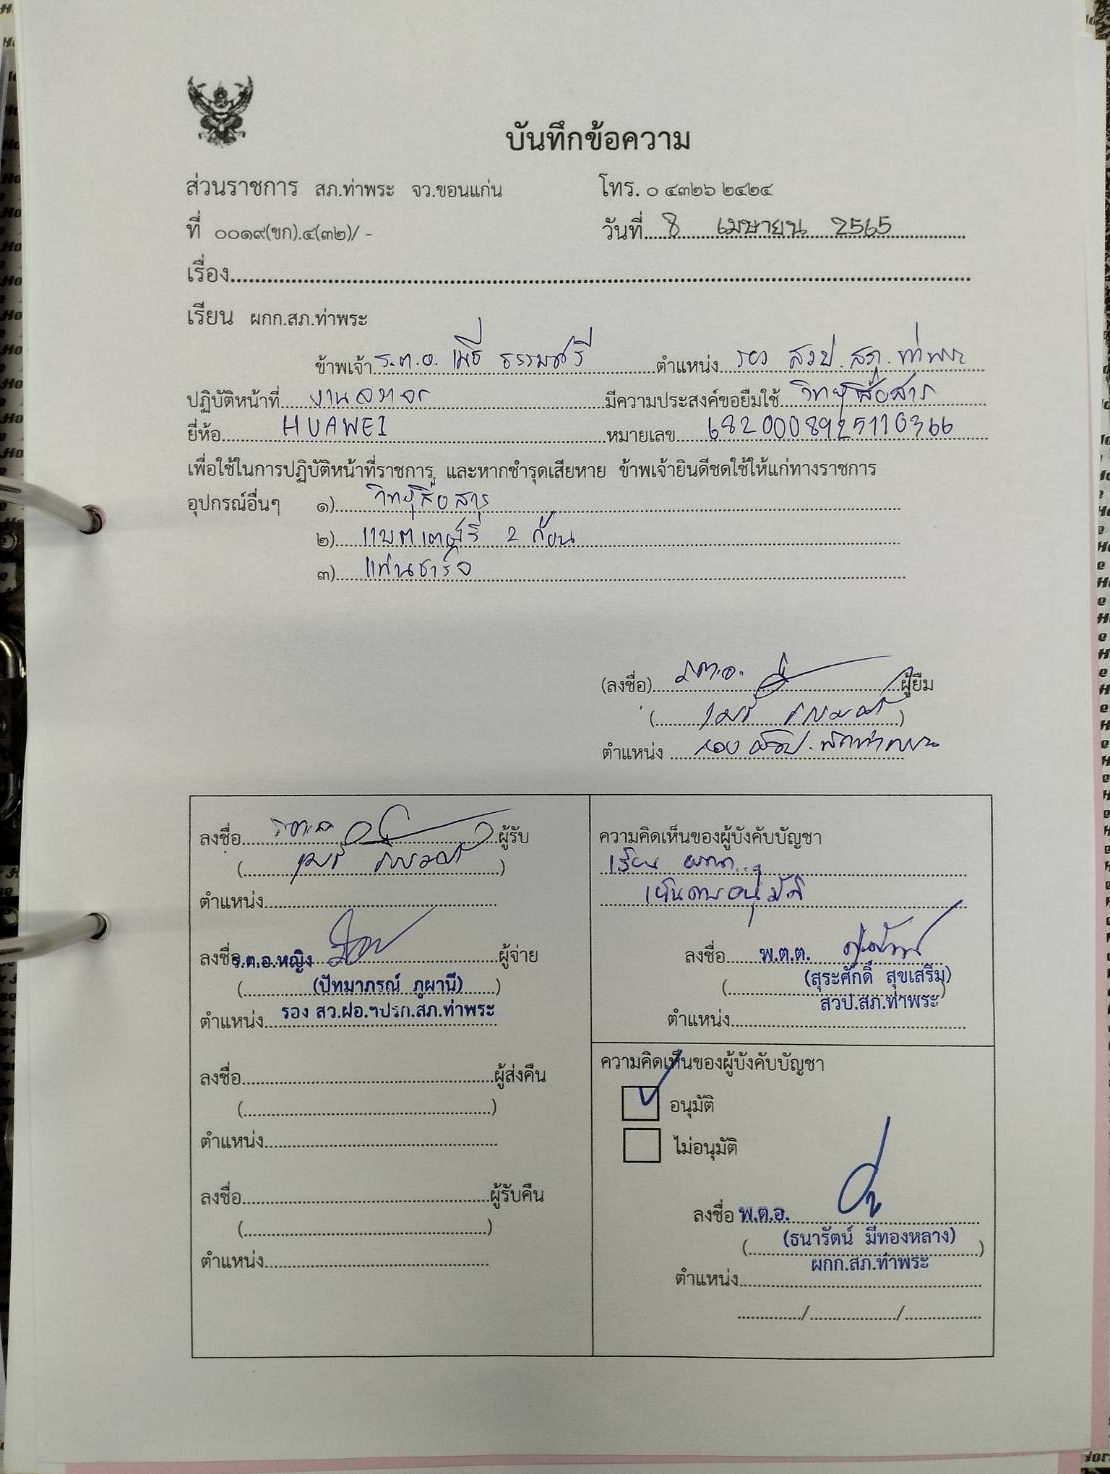 บันทึกข้อความ
ส่วนราชการ สภ.ท่าพระ จว.ขอนแก่น โทร. ๐ ๔๓๒๖ ๒๔๒๔
ที่ ๐๐๑๙(ขก).๔(๓๒)/ - วันที่ 8 เมษายน 2565
เรื่อง
เรียน ผกก.สภ.ท่าพระ
ข้าพเจ้า ร.ต.อ. เมธี ตำแหน่ง รอง สวป. สภ. ท่าพระ
ปฏิบัติหน้าที่ งานจราจร มีความประสงค์ขอยืมใช้ วิทยุสื่อสาร
ยี่ห้อ HUAWEI หมายเลข
เพื่อใช้ในการปฏิบัติหน้าที่ราชการ และหากชำรุดเสียหาย ข้าพเจ้ายินดีชดใช้ให้แก่ทางราชการ
อุปกรณ์อื่นๆ ๑) วิทยุสื่อสาร
๒) แบตเตอรี่ 2 ก้อน
๓) แท่นชาร์จ
(ลงชื่อ) ร.ต.อ. ผู้ยืม
( เมธี )
ตำแหน่ง รอง สวป.
ลงชื่อ ผู้รับ
( เมธี )
ตำแหน่ง
ลงชื่อ ร.ต.อ.หญิง ผู้จ่าย
(ปัทมาภรณ์ ภูผานี)
ตำแหน่ง รอง สว.ฝอ.ฯปรก.สภ.ท่าพระ
ลงชื่อ ผู้ส่งคืน
( )
ตำแหน่ง
ลงชื่อ ผู้รับคืน
( )
ตำแหน่ง
ความคิดเห็นของผู้บังคับบัญชา
เรียน ผกก.
เห็นควรอนุมัติ
ลงชื่อ พ.ต.ต.
(สุระศักดิ์ สุขเสริม)
สวป.สภ.ท่าพระ
ตำแหน่ง
ความคิดเห็นของผู้บังคับบัญชา
อนุมัติ
ไม่อนุมัติ
ลงชื่อ พ.ต.อ.
(ธนารัตน์ มีทองหลาง)
ผกก.สภ.ท่าพระ
ตำแหน่ง
/ /